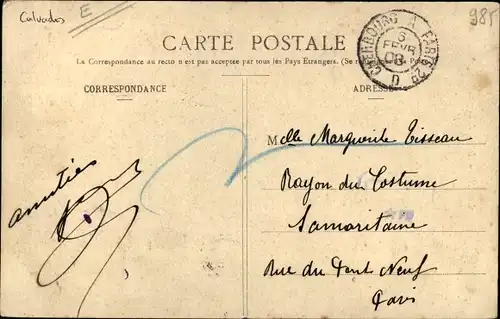 Calvados
E
985
CARTE POSTALE
La Correspondance au recto n'est pas acceptée par tous les Pays Etrangers. (Se
CORRESPONDANCE
ADRESSE
CHERBOURG A PARIS
6
FEVR
08
D
Melle Marguerite Tisseau
Rayon du Costume
Samaritaine
Rue du Pont Neuf
Paris
amitiés